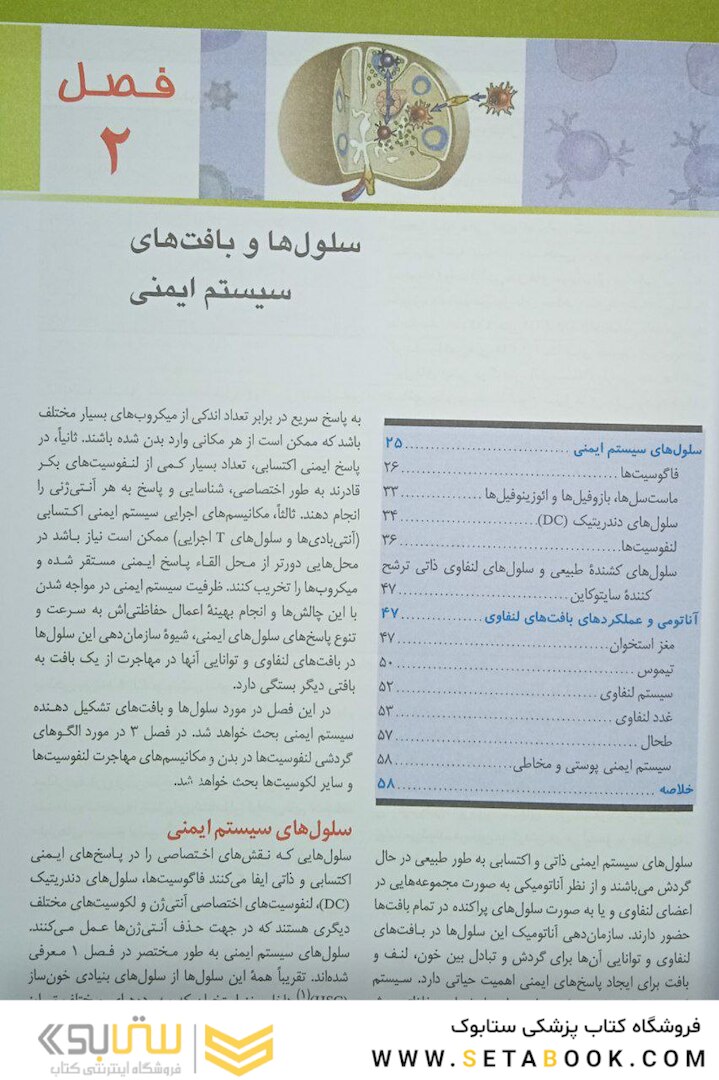 فصل
۲
سلول‌ها و بافت‌های
سیستم ایمنی
سلول‌های سیستم ایمنی ........ ۲۵
فاگوسیت‌ها ........ ۲۶
ماست‌سل‌ها، بازوفیل‌ها و ائوزینوفیل‌ها ........ ۳۳
سلول‌های دندریتیک (DC) ........ ۳۴
لنفوسیت‌ها ........ ۳۶
سلول‌های کشندهٔ طبیعی و سلول‌های لنفاوی ذاتی ترشح
کنندهٔ سایتوکاین ........ ۴۷
آناتومی و عملکردهای بافت‌های لنفاوی ........ ۴۷
مغز استخوان ........ ۴۷
تیموس ........ ۵۰
سیستم لنفاوی ........ ۵۲
غدد لنفاوی ........ ۵۳
طحال ........ ۵۷
سیستم ایمنی پوستی و مخاطی ........ ۵۸
خلاصه ........ ۵۸
سلول‌های سیستم ایمنی ذاتی و اکتسابی به طور طبیعی در حال
گردش می‌باشند و از نظر آناتومیکی به صورت مجموعه‌هایی در
اعضای لنفاوی و یا به صورت سلول‌های پراکنده در تمام بافت‌ها
حضور دارند. سازمان‌دهی آناتومیک این سلول‌ها در بافت‌های
لنفاوی و توانایی آن‌ها برای گردش و تبادل بین خون، لنف و
بافت برای ایجاد پاسخ‌های ایمنی اهمیت حیاتی دارد. سیستم
به پاسخ سریع در برابر تعداد اندکی از میکروب‌های بسیار مختلف
باشد که ممکن است از هر مکانی وارد بدن شده باشند. ثانیاً، در
پاسخ ایمنی اکتسابی، تعداد بسیار کمی از لنفوسیت‌های بکر
قادرند به طور اختصاصی، شناسایی و پاسخ به هر آنتی‌ژنی را
انجام دهند. ثالثاً، مکانیسم‌های اجرایی سیستم ایمنی اکتسابی
(آنتی‌بادی‌ها و سلول‌های T اجرایی) ممکن است نیاز باشد در
محل‌هایی دورتر از محل القاء پاسخ ایمنی مستقر شده و
میکروب‌ها را تخریب کنند. ظرفیت سیستم ایمنی در مواجه شدن
با این چالش‌ها و انجام بهینهٔ اعمال حفاظتی‌اش به سرعت و
تنوع پاسخ‌های سلول‌های ایمنی، شیوهٔ سازمان‌دهی این سلول‌ها
در بافت‌های لنفاوی و توانایی آنها در مهاجرت از یک بافت به
بافتی دیگر بستگی دارد.
در این فصل در مورد سلول‌ها و بافت‌های تشکیل دهنده
سیستم ایمنی بحث خواهد شد. در فصل ۳ در مورد الگوهای
گردشی لنفوسیت‌ها در بدن و مکانیسم‌های مهاجرت لنفوسیت‌ها
و سایر لکوسیت‌ها بحث خواهد شد.
سلول‌های سیستم ایمنی
سلول‌هایی که نقش‌های اختصاصی را در پاسخ‌های ایمنی
اکتسابی و ذاتی ایفا می‌کنند فاگوسیت‌ها، سلول‌های دندریتیک
(DC)، لنفوسیت‌های اختصاصی آنتی‌ژن و لکوسیت‌های مختلف
دیگری هستند که در جهت حذف آنتی‌ژن‌ها عمل می‌کنند.
سلول‌های سیستم ایمنی به طور مختصر در فصل ۱ معرفی
شده‌اند. تقریباً همهٔ این سلول‌ها از سلول‌های بنیادی خون‌ساز
ستابوک
فروشگاه اینترنتی کتاب
فروشگاه کتاب پزشکی ستابوک
WWW.SETABOOK.COM